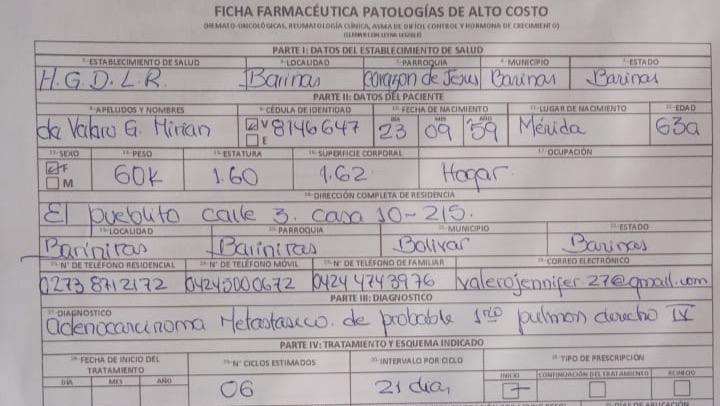 FICHA FARMACÉUTICA PATOLOGÍAS DE ALTO COSTO
(HEMATO-ONCOLÓGICAS, REUMATOLOGÍA CLÍNICA, ASMA DE DIFÍCIL CONTROL Y HORMONA DE CRECIMIENTO)
(LLENAR CON LETRA LEGIBLE)
PARTE I: DATOS DEL ESTABLECIMIENTO DE SALUD
ESTABLECIMIENTO DE SALUD LOCALIDAD PARROQUIA MUNICIPIO ESTADO
H.G.D.L.R. Barinas Corazon de Jesus Barinas Barinas
PARTE II: DATOS DEL PACIENTE
APELLIDOS Y NOMBRES CÉDULA DE IDENTIDAD FECHA DE NACIMIENTO LUGAR DE NACIMIENTO EDAD
V DÍA MES AÑO
de G. Mirian 8146647 23 09 59 Mérida 63a
E
SEXO PESO ESTATURA SUPERFICIE CORPORAL OCUPACIÓN
F 60K 1.60 1.62 Hogar
M
DIRECCIÓN COMPLETA DE RESIDENCIA
El pueblito calle 3. casa 10-215.
LOCALIDAD PARROQUIA MUNICIPIO ESTADO
Barinitas Barinitas Bolivar Barinas
N° DE TELÉFONO RESIDENCIAL N° DE TELÉFONO MÓVIL N° DE TELÉFONO DE FAMILIAR CORREO ELECTRÓNICO
0273 8712172 04245000672 0424 4743976 valerojennifer27@gmail.com
PARTE III: DIAGNOSTICO
DIAGNOSTICO
adenocarcinoma Metastasico. de probable 1rio pulmon derecho IV
PARTE IV: TRATAMIENTO Y ESQUEMA INDICADO
FECHA DE INICIO DEL TRATAMIENTO N° CICLOS ESTIMADOS INTERVALO POR CICLO TIPO DE PRESCRIPCIÓN
DÍA MES AÑO INICIO CONTINUACIÓN DEL TRATAMIENTO REINICIO
06 21 dias